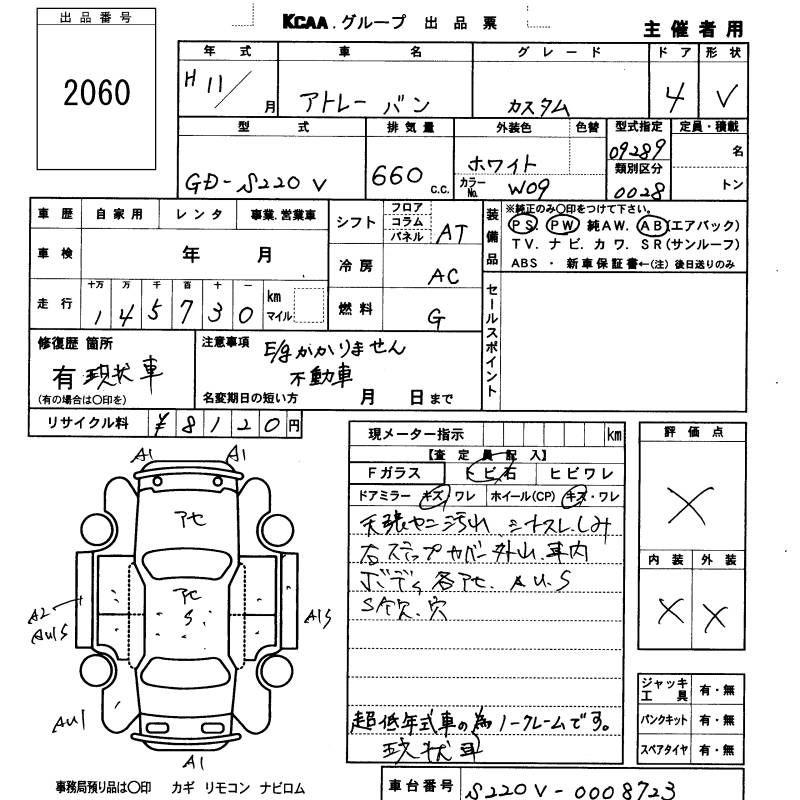 出品番号
2060
KCAA.グループ 出品票
主催者用
年式 車名 グレード ドア 形状
H11/月 アトレー バン カスタム 4 V
型式 排気量 外装色 色替 型式指定 定員・積載
GD-S220V 660 c.c. ホワイト 09289 名
カラーNo. W09 類別区分 0028 トン
車歴 自家用 レンタ 事業.営業車
車検 年 月
走行 十万 万 千 百 十 一
145730 km マイル
シフト フロア コラム パネル AT
冷房 AC
燃料 G
装備品 ※純正のみ〇印をつけて下さい。
PS. PW 純AW. AB(エアバック)
TV. ナビ. カワ. SR(サンルーフ)
ABS ・ 新車保証書←(注) 後日送りのみ
セールスポイント
修復歴 箇所
有 現状車
(有の場合は〇印を)
注意事項 E/gかかりません
不動車
名変期日の短い方 月 日まで
リサイクル料 ¥8120円
現メーター指示 km
【査定員記入】
Fガラス トビ石 ヒビワレ
ドアミラー キズ・ワレ ホイール(CP) キズ・ワレ
天張ヤニ汚れ シートスレ.しみ
右ステップカバー外れ.車内
ボディ各アセ. AU.S
S欠.穴
超低年式車の為ノークレームです。
現状車
評価点
X
内装 外装
X X
ジャッキ工具 有・無
パンクキット 有・無
スペアタイヤ 有・無
A1 A1
アセ
アセ
S
A2
AU1S
A1S
AU1
A1
事務局預り品は〇印 カギ リモコン ナビロム
車台番号 S220V-0008723